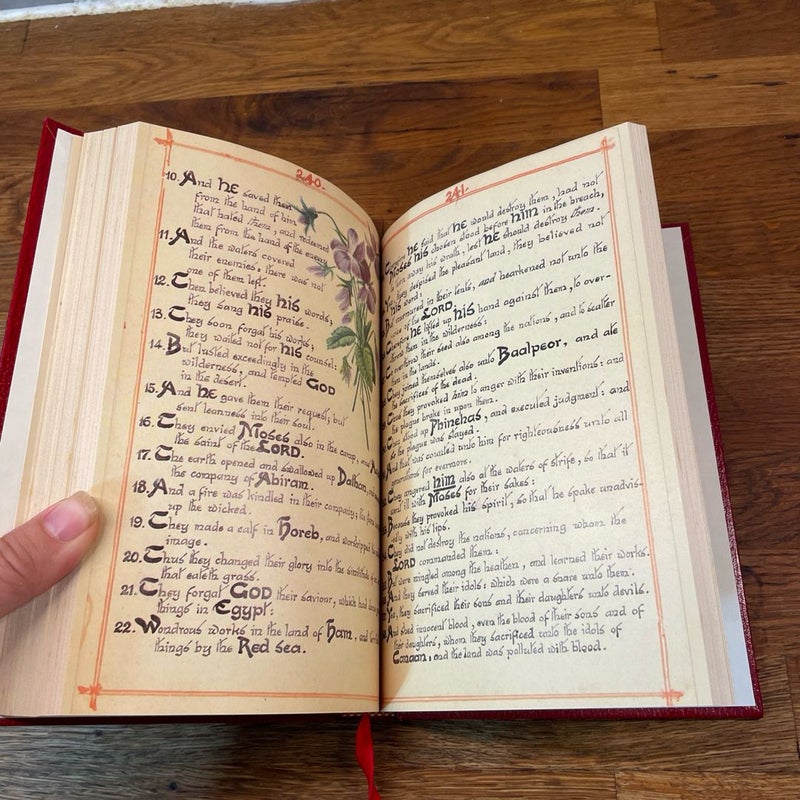 240.
10. And HE saved them
from the hand of him
that hated them, and redeemed
them from the hand of the enemy.
11. And the waters covered
their enemies, there was not
one of them left.
12. Then believed they his words;
they sang his praise.
13. They soon forgat his works;
they waited not for his counsel:
14. But lusted exceedingly in the
wilderness, and tempted GOD
in the desert.
15. And HE gave them their request; but
sent leanness into their soul.
16. They envied Moses also in the camp, and
the saint of the LORD.
17. The earth opened and swallowed up Dathan, and
the company of Abiram.
18. And a fire was kindled in their company; the
up the wicked.
19. They made a calf in Horeb, and worshipped
image.
20. Thus they changed their glory into the similitude
that eateth grass.
21. They forgat GOD their saviour, which had
things in Egypt:
22. Wondrous works in the land of Ham, and
things by the Red sea.
241.
HE said that HE would destroy them, had not
Moses his chosen stood before him in the breach,
turn away his wrath, lest HE should destroy them.
they despised the pleasant land, they believed not
his word:
murmured in their tents, and hearkened not unto the
of the LORD.
HE lifted up his hand against them, to over-
them in the wilderness:
overthrow their seed also among the nations, and to scatter
in the lands.
They joined themselves also unto Baalpeor, and ate
sacrifices of the dead.
they provoked him to anger with their inventions: and
plague brake in upon them.
stood up Phinehas, and executed judgment: and
the plague was stayed.
And that was counted unto him for righteousness unto all
generations for evermore.
They angered him also at the waters of strife, so that it
ill with Moses for their sakes:
Because they provoked his spirit, so that he spake unadvis-
edly with his lips.
They did not destroy the nations, concerning whom the
LORD commanded them:
But were mingled among the heathen, and learned their works.
And they served their idols: which were a snare unto them.
they sacrificed their sons and their daughters unto devils.
And shed innocent blood, even the blood of their sons and of
their daughters, whom they sacrificed unto the idols of
Canaan, and the land was polluted with blood.